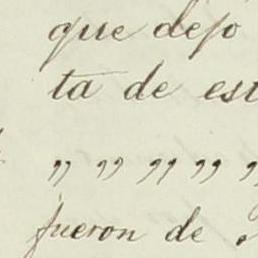 que dejo
ta de est
,, ,, ,, ,, ,,
fueron de